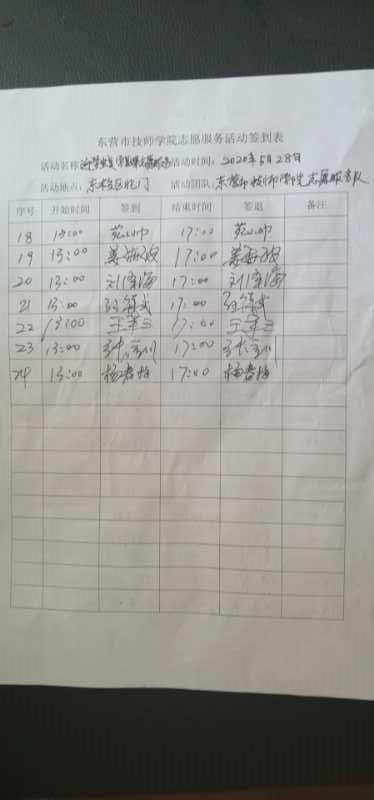 东营市技师学院志愿服务活动签到表
活动名称 活动时间：2020年5月28日
活动地点：东校区北门 活动团队：东营市技师学院志愿服务队
序号 开始时间 签到 结束时间 签退 备注
18 13:00 苑小帅 17:00 苑小帅
19 13:00 姜海政 17:00 姜海政
20 13:00 17:00
21 13:00 17:00
22 13:00 王军三 17:00 王军三
23 13:00 17:00
24 13:00 杨春梅 17:00 杨春梅